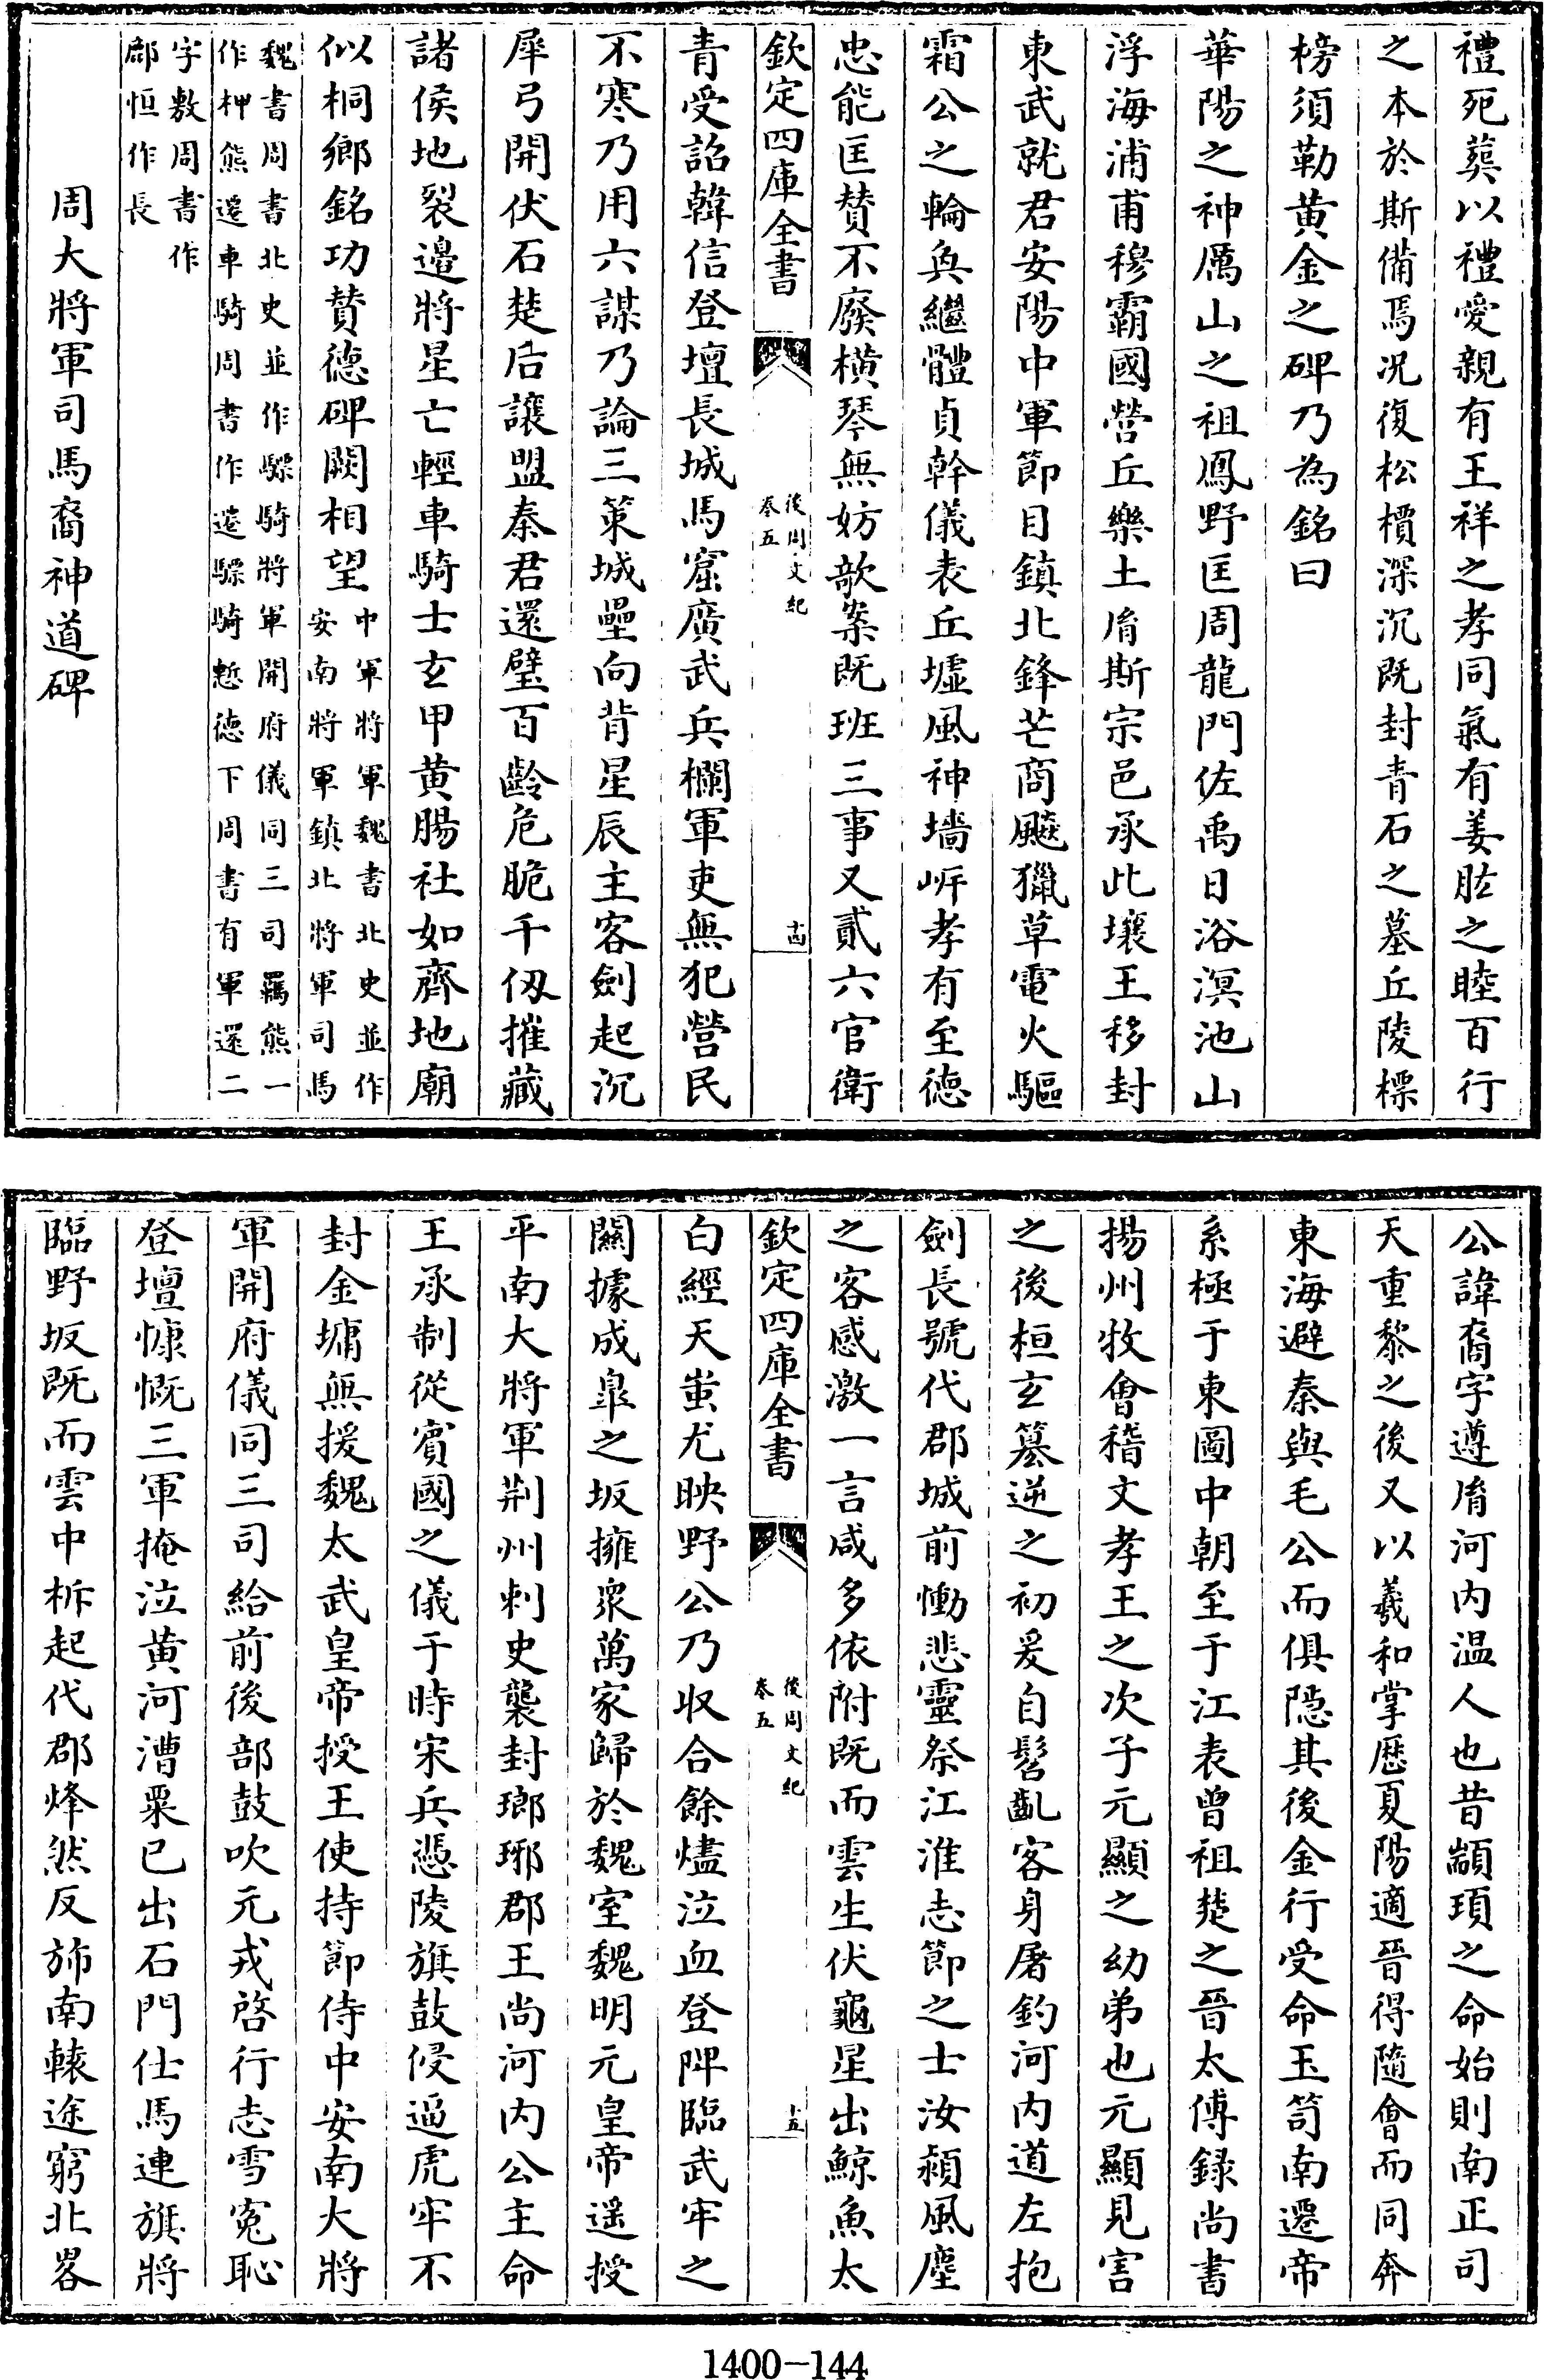 禮死葬以禮愛親有王祥之孝同氣有姜肱之睦百行
之本於斯備焉况復松檟深沉既封青石之墓丘陵標
榜須勒黄金之碑乃為銘曰
華陽之神厲山之祖鳳野匡周龍門佐禹日浴溟池山
浮海浦甫穆霸國營丘樂土胤斯宗邑承此壤王移封
東武就君安陽中軍節目鎮北鋒芒商飈獵草電火驅
霜公之輪奐繼體貞幹儀表丘墟風神墻岸孝有至德
忠能匡贊不廢橫琴無妨歌案既班三事又貳六官衛
欽定四庫全書
後周文紀
卷五
十四
青受詔韓信登壇長城馬窟廣武兵欄軍吏無犯營民
不寒乃用六謀乃論三策城壘向背星辰主客劍起沉
犀弓開伏石楚后讓盟秦君還璧百齡危脆千仭摧藏
諸侯地裂邊將星亡輕車騎士玄甲黄腸社如齊地廟
似桐鄉銘功贊德碑闕相望
中軍將軍魏書北史並作
安南將軍鎮北將軍司馬
魏書周書北史並作驃騎將軍開府儀同三司羈熊一
作柙熊還車騎周書作還驃騎慙德下周書有軍還二
字敷周書作
鄜恒作長
周大將軍司馬裔神道碑
公諱裔字遵胤河内温人也昔顓頊之命始則南正司
天重黎之後又以羲和掌歴夏陽適晉得隨會而同奔
東海避秦與毛公而俱隱其後金行受命玉笥南遷帝
系極于東圖中朝至于江表曾祖楚之晉太傅録尚書
揚州牧會稽文孝王之次子元顯之幼弟也元顯見害
之後桓玄簒逆之初爰自髫齓客身屠釣河内道左抱
劍長號代郡城前慟悲靈祭江淮志節之士汝潁風塵
之客感激一言咸多依附既而雲生伏龜星出鯨魚太
欽定四庫全書
後周文紀
卷五
十五
白經天蚩尤映野公乃收合餘燼泣血登陴臨武牢之
關據成皐之坂擁衆萬家歸於魏室魏明元皇帝遥授
平南大將軍荆州刺史襲封瑯琊郡王尚河内公主命
王承制從賓國之儀于時宋兵憑陵旗鼓侵逼虎牢不
封金墉無援魏太武皇帝授王使持節侍中安南大將
軍開府儀同三司給前後部鼓吹元戎啓行志雪寃恥
登壇慷慨三軍掩泣黄河漕粟已出石門仕馬連旗將
臨野坂既而雲中柝起代郡烽然反斾南轅途窮北畧
1400-144